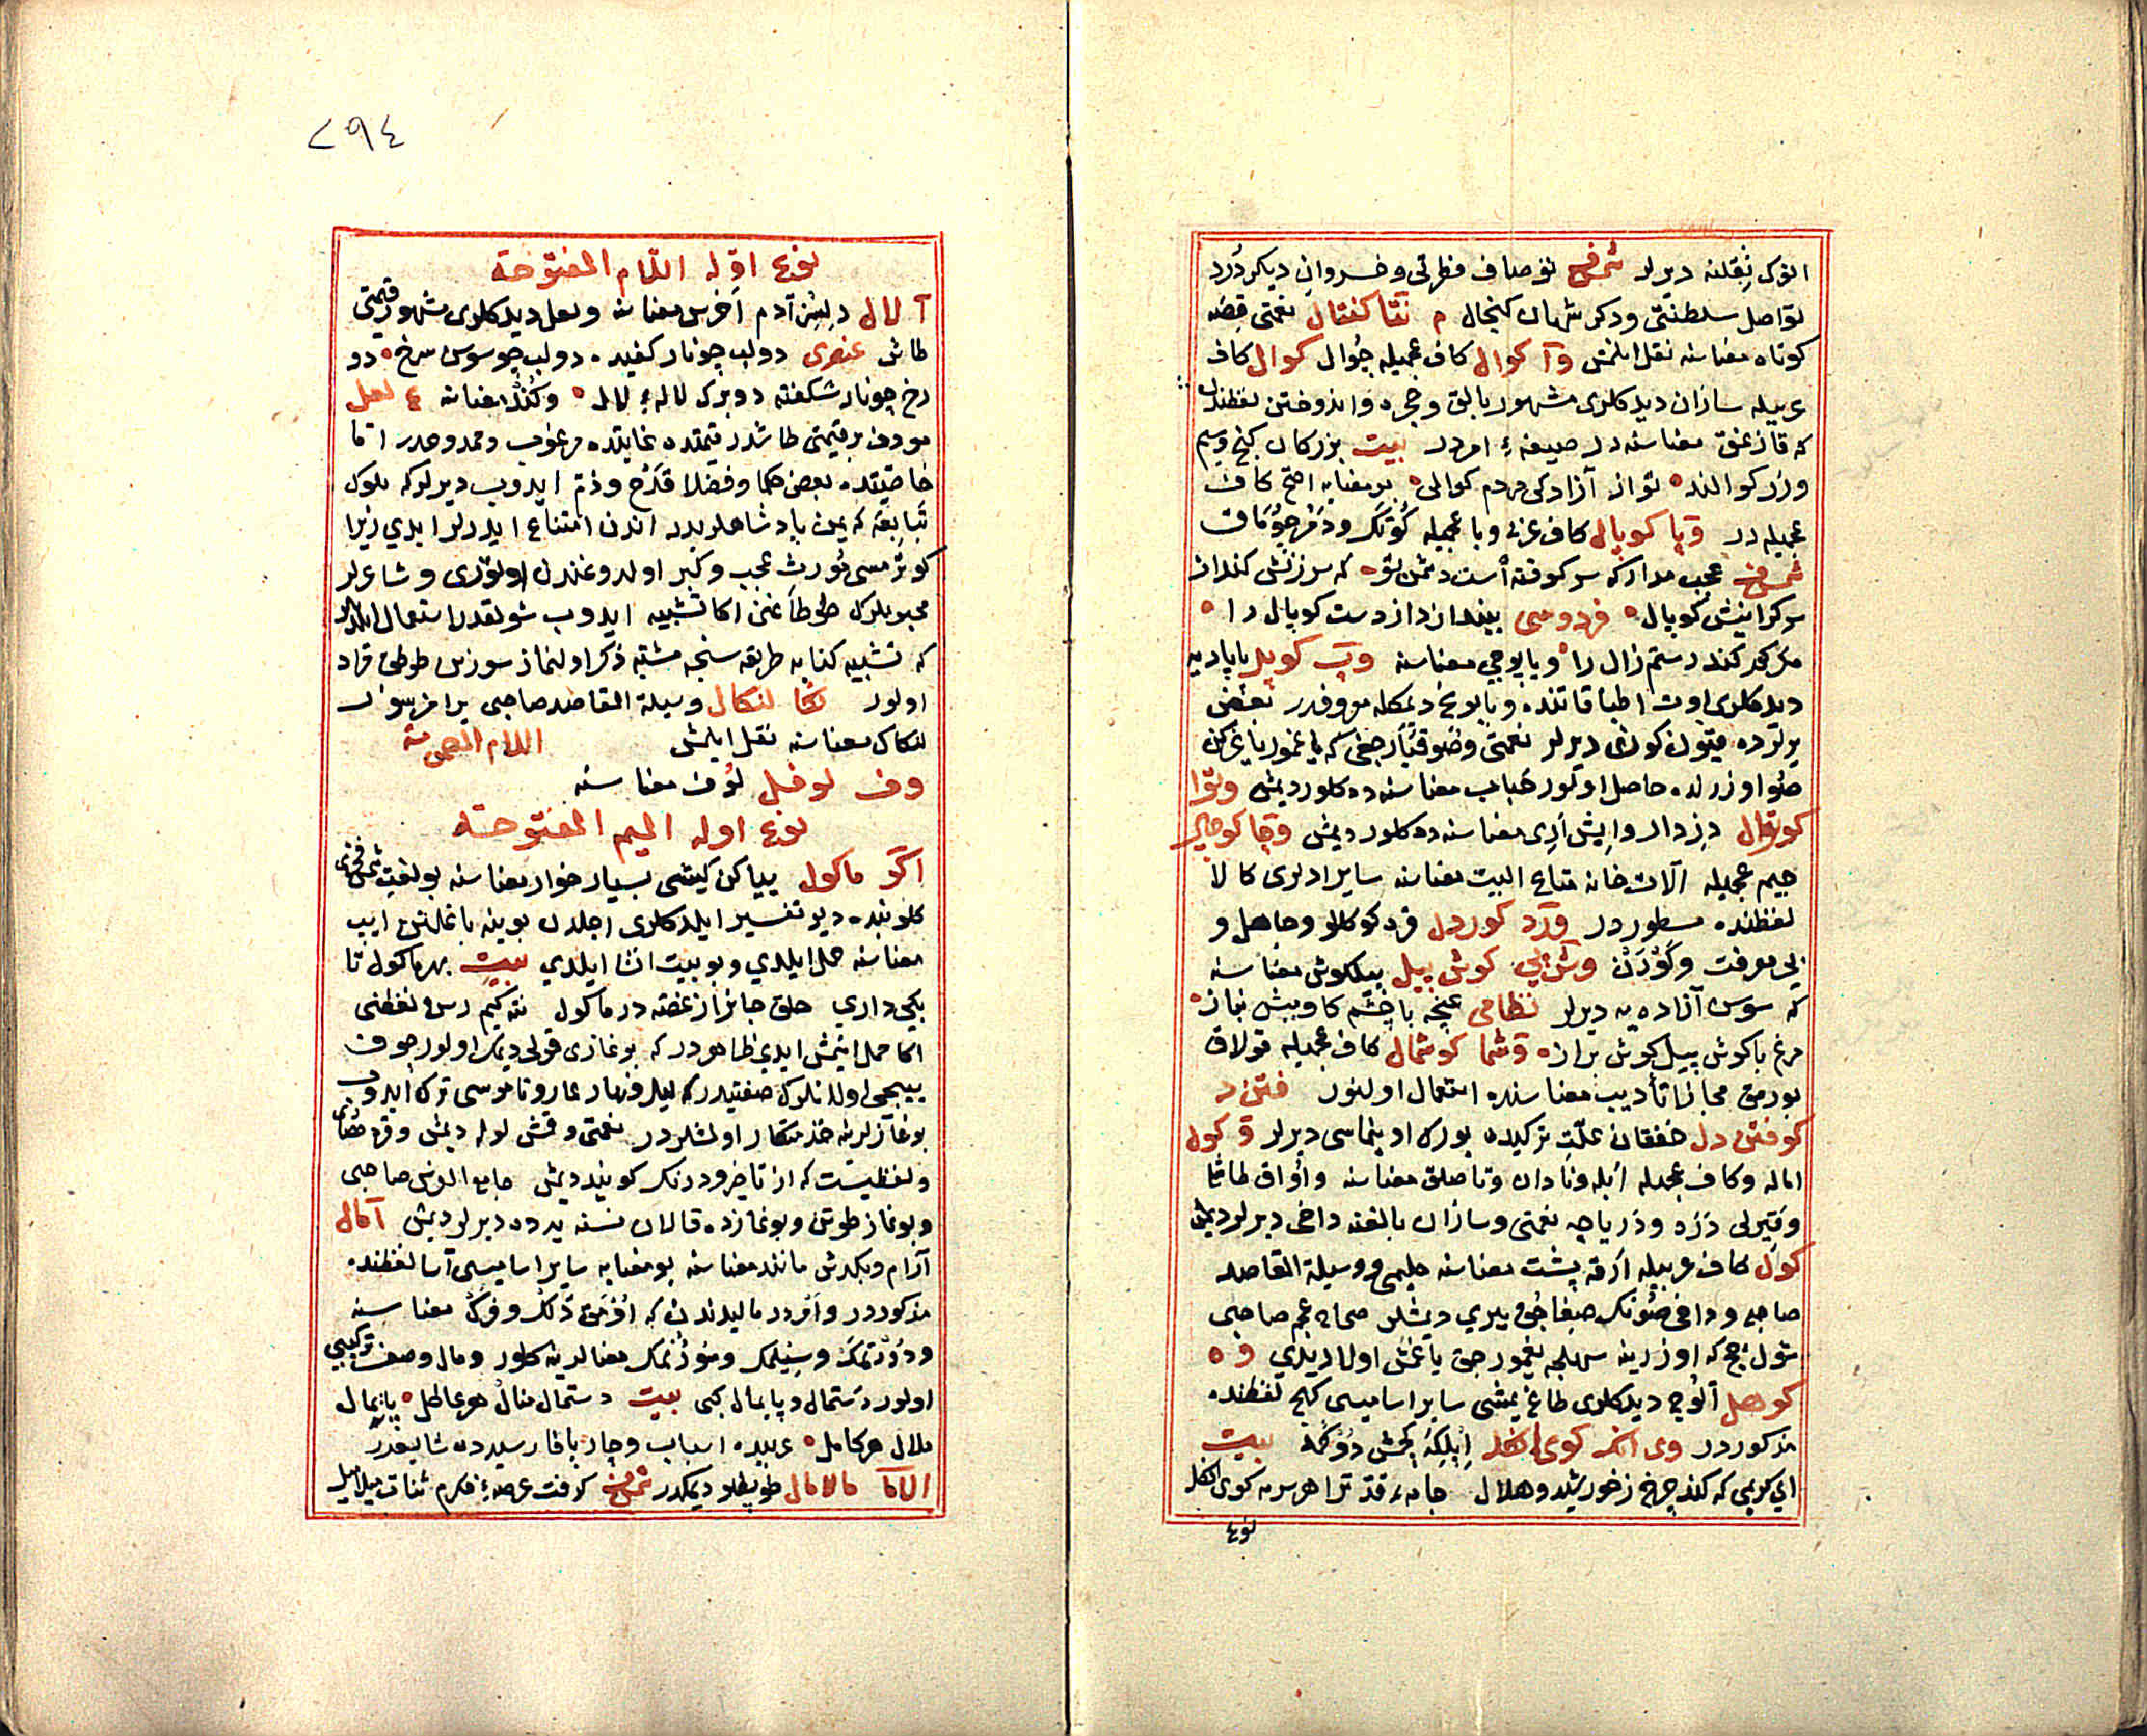 النوک نقلنه دیرلر شمس فخری نو صاف فطرتی و خسروان دیکر درد
تو اصل سلطنتی و دکر شهان کنجال م نتا کفتال نعمتی قصه
کوتاه معناسنه نقل ایلمش وآ کوال کاف عجمیله جوال کوال کاف
عربیله سازان دیدکلری مشهور بالق و جمع و اندوختن لفظندن
که قازغنق معناسنه در صیغهٔ امردر بیت بزرکان کنج و سیم
و زر کوالند تو از آزادکی مردم کوالی بو معنایه اصح کاف
عجمیله در وپا کوپال کاف عربی و با عجمیله کوتک و دمر چوماق
شمس فخری عجب مدار که سر کوفته است دشمن تو که سرزنش کند از
سر کرانیش کوپال فردوسی بینداز از دست کوپال را
مکر کند رستم زال را و یابوجی معناسنه وپ کوپل پاپادیه
دیدکلری اوت اطبا قاتنده و بابونج دیمکله معروفدر بعض
یرلرده قیون کوزی دیرلر نعمتی و صو قبارجغی که یاغمور یاغرکن
صو اوزرنده حاصل اولور حباب معناسنه ده کلور دیمش وتوا
کوتوال دزدار و ایش اری معناسنه ده کلور دیمش وچا کوچال
جیم عجمیله آلات خانه متاع البیت معناسنه سایر ادلری کالا
لفظنده مسطوردر ورد کوردل قرد کوکللو و جاهل و
بی معرفت و کودن وش پی کوش پیل پیلکوش معناسنه
که سوسن آزاده یه دیرلر نظامی غنچه با چشم کاو چشم بناز
مرغ با کوش پیل کوش براز وشما کوشمال کاف عجمیله قولاق
بورمق مجازا تأدیب معناسنده استعمال اولنور فتن د
کوفتن دل خفقان علتی ترکیده یورک اوینماسی دیرلر و کول
اماله و کاف عجمیله ابله و نادان و تاصلق معناسنه و اواق طاشا
و قیرلی دره و دریاچه نعمتی و سازان بالغنه داخی دیرلر دیمش
کول کاف عربیله ارقه پشت معناسنه حلیمی و وسیلة المقاصد
صاحبی و داخی صونک صیغاجق ییری دیمشلر صحاح عجم صاحبی
شول بج که اوزرینه سهلجه یغمورجق یاغمش اولا دیدی و ه
کوهل آلوج دیدکلری طاغ یمشی سایر اسامیسی کهج لفظنده
مذکوردر وی انکه کوی انکل ایلکه یخمش دوکمه بیت
ای کریمی که کند چرخ ز خورشید و هلال جامهٔ قدّ ترا هر سر مه کوی انکل
نوع
٢٩٤
نوع اوّله اللام المفتوحة
آ لال دلسز آدم اخرس معناسنه و لعل دیدکلری مشهور قیمتی
طاش عنصری دو لب چو نار کفیده دو لب چو سوسن سرخ دو
رخ چو نار شکفته دو برک لالهٔ لال و کند معناسنه ع لعل
معروف بر قیمتی طاشدر قیمتده غایتده مرغوب و ممدوحدر اما
خاصیتده بعض حکما و فضلا قدح و ذم ایدوب دیرلر که ملوک
تبابعه که یمن پادشاهلریدر اندن امتناع ایدرلر ایدی زیرا
کوترمسی مورث عجب و کبر اولدوغندن اوتوری و شاعرلر
محبوبلرک طوطاغنی اکا تشبیه ایدوب شولقدر استعمال ایلدیلر
که تشبیه کنایه طریقه سنجه مشبه ذکر اولنماز سوزس طوطق مراد
اولور نکا لنکال وسیلة المقاصد صاحبی یرامز سوز
لنکاک معناسنه نقل ایلمش اللام المضمومة
وف لوفل لوف معناسنه
نوع اوله المیم المفتوحة
اکو ماکول ییاکن کیشی بسیار خوار معناسنه بو لغت شمس فخری
کلوبنده دیو تفسیر ایلدکلری اجلدن بوینه باغلانن ایپ
معناسنه حمل ایلدی و بو بیت انشا ایلدی بیت بهر ماکول تا
بکی داری حلق جانرا ز غصه در ماکول نته کیم رسن لفظنی
اکا حمل ایتمش ایدی ظاهردر که بوغازی قولی دیمک اولور چوق
ییجی اولانلرک صفتیدر که لیل و نهار عار و ناموسی ترک ایدوب
بوغازلرینه خذمتکار اولمشلردر نعمتی و قمش لوله دیمش و قره حصاری
و لفظیست که از تاخیر و درنک کویند دیمش جامع الفرس صاحبی
و بوغاز طوتن و بوغازده قالان نسنه یه ده دیرلر دیمش آ مال
آرام و بکدش مانند معناسنه بو معنایه سایر اسامیسی آسا لفظنده
مذکوردر و امردر مالیدندن که اوزمق دلک و فرک معناسنه
و دورتمک و سیلمک و سوزتمک معنالرینه کلور و مال وصف ترکیبی
اولور دستمال و پایمال کبی بیت دستمال منال هر عاطل پایمال
ملال هر کامل عربیده اسباب و چارپا قارسیده شایقدر
الاما مالامال طوپطلو دیمکدر شمس فخری کرفت عرصهٔ مکرم ثنات میلامیل